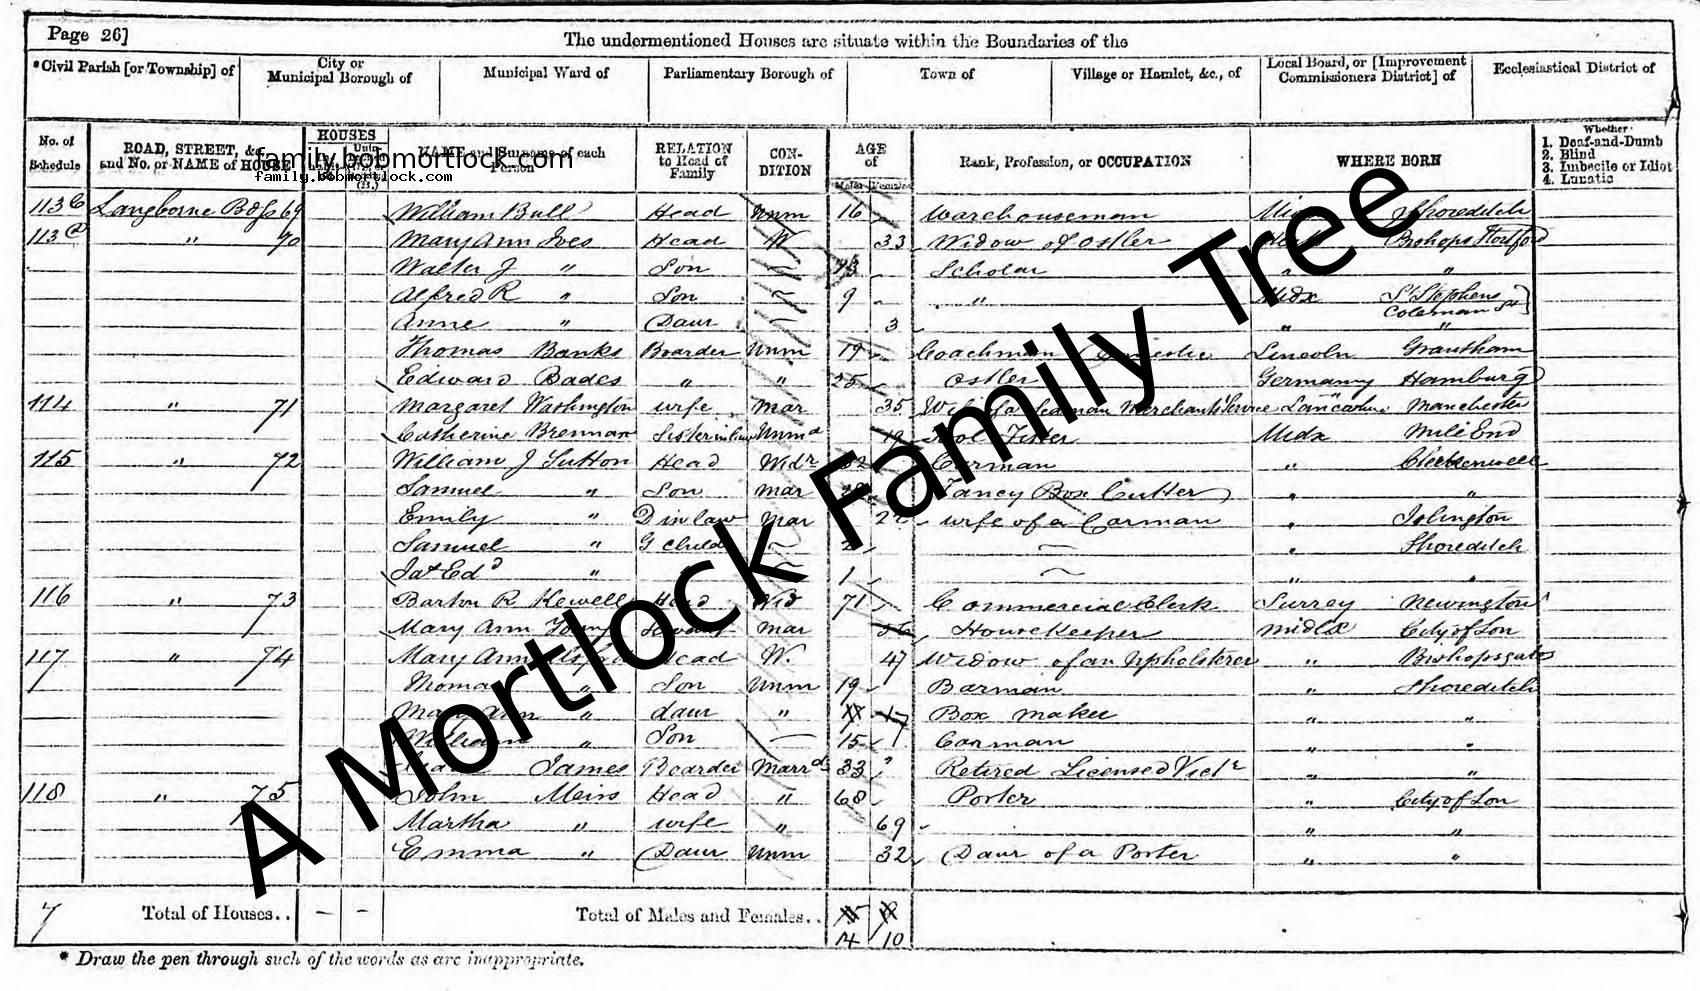 Page 26]
The undermentioned Houses are situate within the Boundaries of the
*Civil Parish [or Township] of
City or Municipal Borough of
Municipal Ward of
Parliamentary Borough of
Town of
Village or Hamlet, &c., of
Local Board, or [Improvement Commissioners District] of
Ecclesiastical District of
No. of Schedule
ROAD, STREET, &c., and No. or NAME of HOUSE
HOUSES
NAME and Surname of each Person
RELATION to Head of Family
CONDITION
AGE of
Males Females
Rank, Profession, or OCCUPATION
WHERE BORN
Whether
1. Deaf-and-Dumb
2. Blind
3. Imbecile or Idiot
4. Lunatic
family.bobmortlock.com
family.bobmortlock.com
A Mortlock Family Tree
113 Langborne Bdgs 69 William Bull Head Unm 16 Warehouseman Shoreditch
113 " 70 Mary Ann Ives Head W 33 Widow of Ostler Bishops Stortford
Walter J " Son Scholar " "
Alfred R " Son 9 " Midx St Stephens Coleman St
Anne " Daur 3 " "
Thomas Banks Boarder Unm 19 Coachman Domestic Lincoln Grantham
Edward Bades " " 25 Ostler Germany Hamburg
114 " 71 Margaret Washington wife Mar 35 Wife of a Seaman Merchants Service Lancashire Manchester
Catherine Brennan Sister in law Unmd 19 Midx Mile End
115 " 72 William J Sutton Head Widr Carman " Clerkenwell
Samuel " Son Mar Fancy Box Cutter " "
Emily " D in law Mar 22 wife of a Carman " Islington
Samuel " G child " Shoreditch
Jas Edd " 1 " "
116 " 73 Barton R Kewell Head Wid 71 Commercial Clerk Surrey Newington
Mary Ann Young Servant Mar 56 Housekeeper Middx City of Lon
117 " 74 Mary Ann Head W. 47 Widow of an Upholsterer " Bishopsgate
Thomas " Son Unm 19 Barman " Shoreditch
Mary Ann " daur " 17 Box maker " "
William " Son 15 Carman " "
James Boarder Marrd 33 Retired Licensed Victr " "
118 " 75 John Meirs Head " 68 Porter " City of Lon
Martha " wife " 69 " "
Emma " Daur Unm 32 Daur of a Porter " "
7 Total of Houses.. – –
Total of Males and Females..
14 10
* Draw the pen through such of the words as are inappropriate.